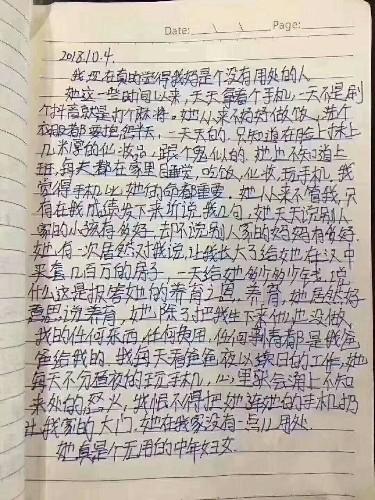 Date: \ \ Page:
2018.10.4.
我现在真的觉得我妈是个没有用处的人
她这一些时间以来,天天拿着个手机,一天不是刷
个抖音就是打麻将。她从来不好好做饭,洗个
衣服都要拖很久,一天天的,只知道在脸上抹上
几米厚的化妆品,跟个鬼似的。她也不知道上
班,每天都在家里睡觉,吃饭,化妆,玩手机,我
觉得手机比她的命都重要。她从来不管我,只
有在我成绩发下来听说我几句,她天天说别人
家的小孩有多好,却不说别人家的妈妈有多好。
她有一次居然对我说,让我长大了给她在汉中
买套几百万的房子,一天给她多少多少钱,说
什么这是报答她的养育之恩。养育,她居然好
意思说养育,她除了把我生下来她也没做,
我的任何东西,任何费用,任何都是我爸
爸给我的。我每天看爸爸夜以继日的工作,她
每天不分昼夜的玩手机,心里就会涌上不知
来处的怒火,我恨不得把她连她的手机扔
出我家的大门,她在我家没有一点儿用处。
她真是个无用的中年妇女